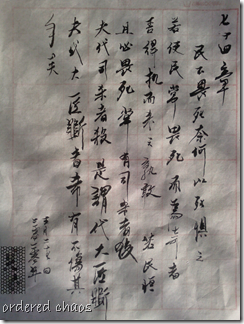 七十四章
民不畏死奈何以死懼之
若使民常畏死而為奇者
吾得執而殺之孰敢 若民恒
且必畏死常有司殺者殺
夫代司殺者殺是謂代大匠斲
夫代大匠斲者希有不傷其
手矣
ordered chaos